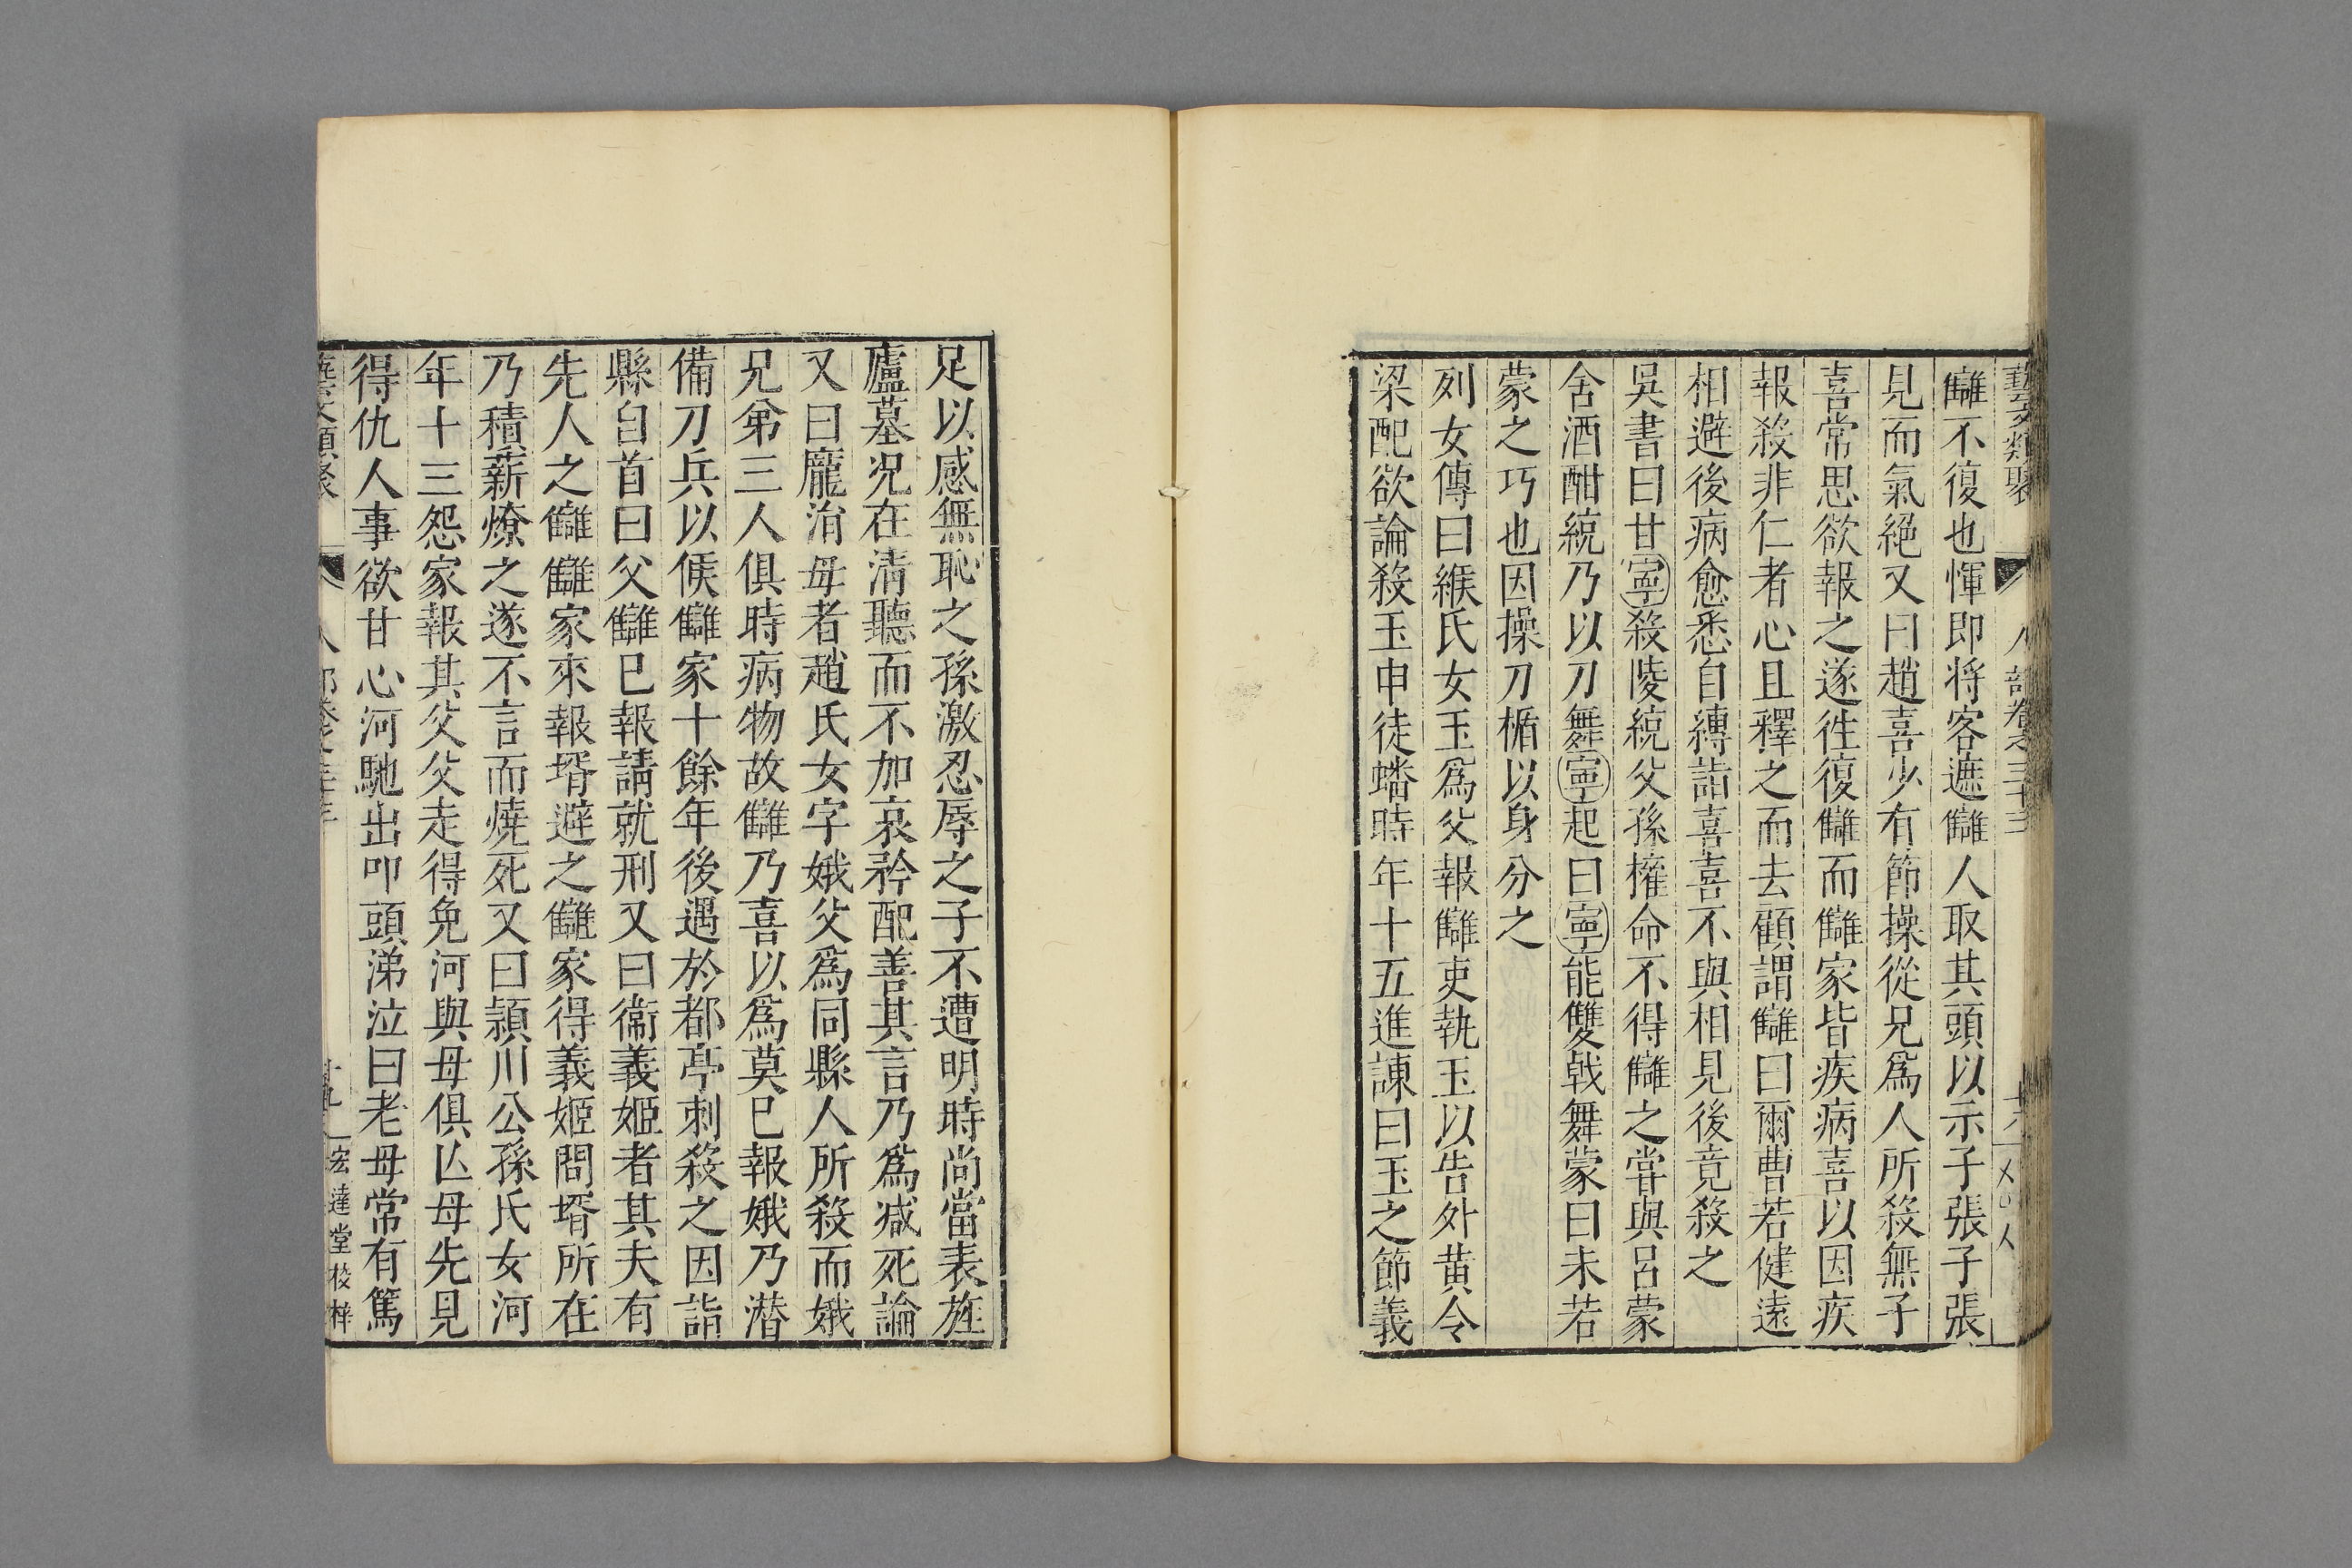 藝文類聚 人部卷之三十三
讎不復也惲即将客遮讎人取其頭以示子張子張
見而氣絕又曰趙喜少有節操從兄爲人所殺無子
喜常思欲報之遂徃復讎而讎家皆疾病喜以因疾
報殺非仁者心且釋之而去顧謂讎曰爾曹若健遠
相避後病愈悉自縛詣喜喜不與相見後竟殺之
吳書曰甘寧殺陵統父孫權命不得讎之甞與呂蒙
舍酒酣統乃以刀舞寧起曰寧能雙戟舞蒙曰未若
蒙之巧也因操刀楯以身分之
列女傳曰緱氏女玉爲父報讎吏執玉以告外黄令
梁配欲論殺玉申徒蟠時年十五進諫曰玉之節義
足以感無恥之孫激忍辱之子不遭明時尚當表旌
廬墓况在清聽而不加哀矜配善其言乃爲减死論
又曰龐淯母者趙氏女字娥父爲同縣人所殺而娥
兄弟三人俱時病物故讎乃喜以爲莫巳報娥乃潜
備刀兵以候讎家十餘年後遇於都亭刺殺之因詣
縣自首曰父讎巳報請就刑又曰衞義姬者其夫有
先人之讎讎家來報壻避之讎家得義姬問壻所在
乃積薪燎之遂不言而燒死又曰潁川公孫氏女河
年十三怨家報其父父走得免河與母俱亾母先見
得仇人事欲甘心河馳出叩頭涕泣曰老母常有篤
宏達堂校梓